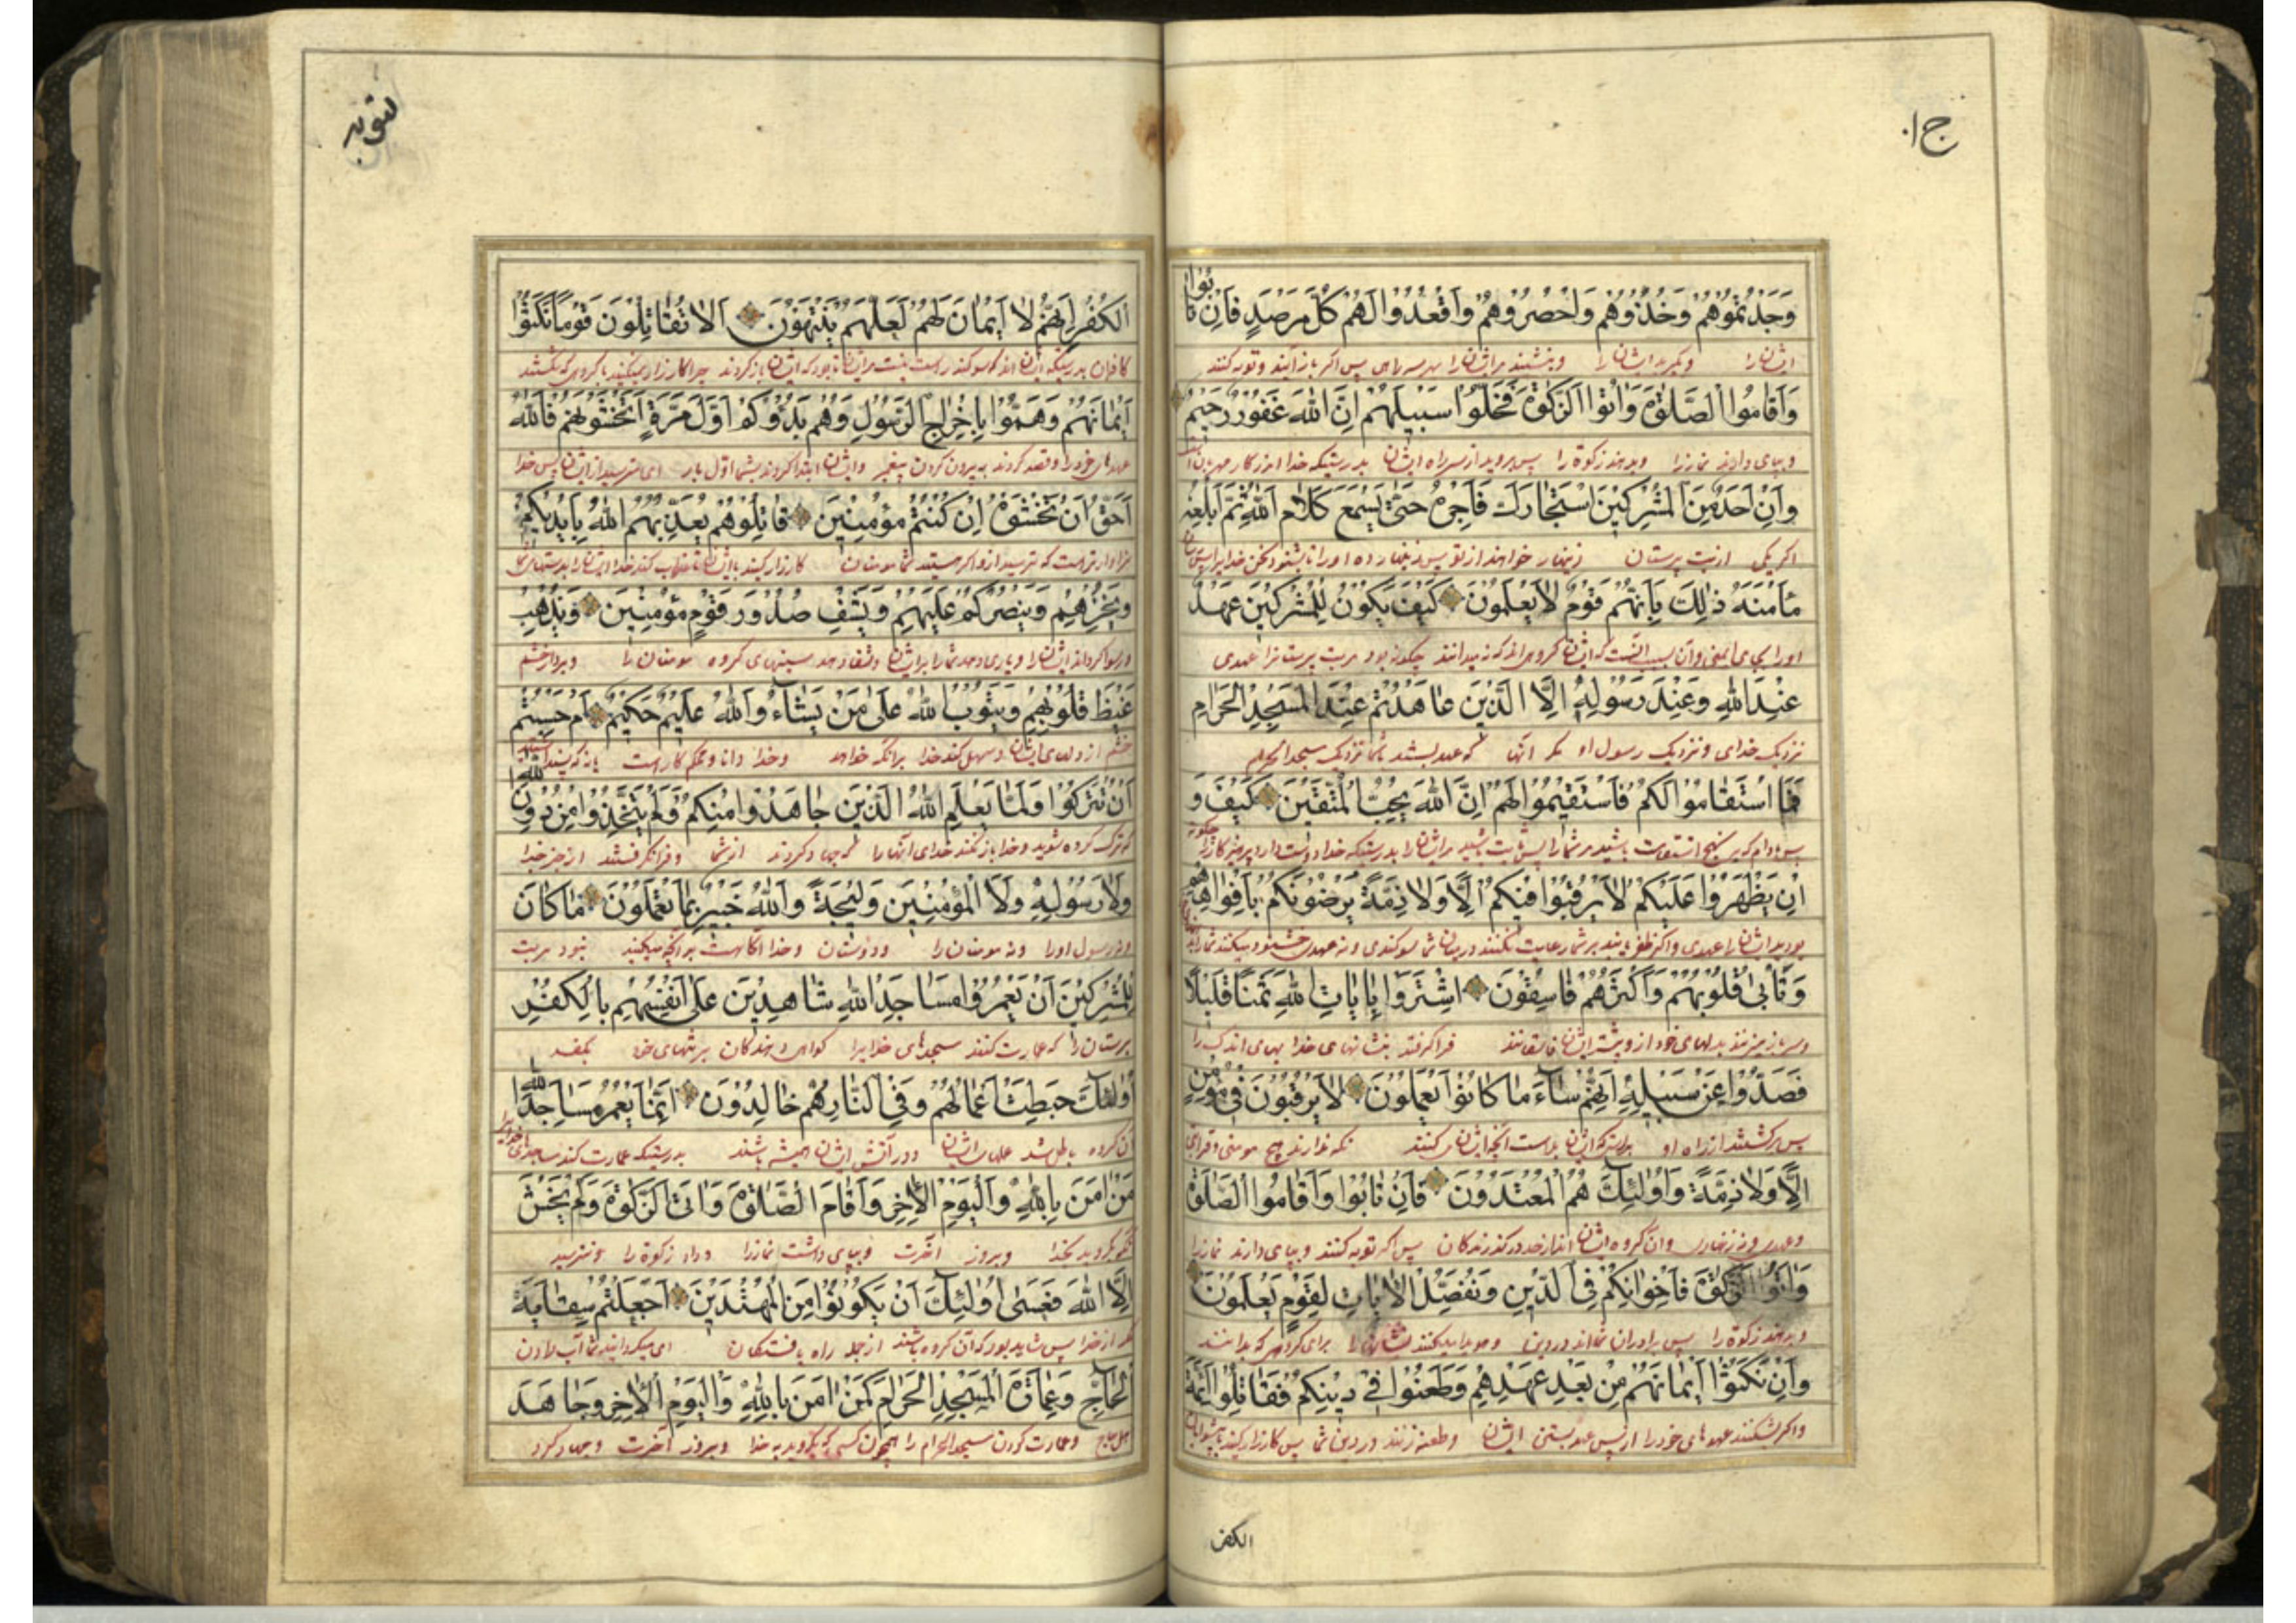 ج ۱۰
وَجَدْتُمُوهُمْ وَخُذُوهُمْ وَاحْصُرُوهُمْ وَاقْعُدُوا لَهُمْ كُلَّ مَرْصَدٍ فَاِنْ تٰابُوا
ایشانرا وبگیرید ایشانرا وبنشینید مر ایشانرا بهر سر راهی پس اگر باز آیند وتوبه کنند
وَاَقٰامُوا الصَّلٰوةَ وَاٰتَوُا الزَّكٰوةَ فَخَلُّوا سَبيلَهُمْ اِنَّ اللّٰهَ غَفُورٌ رَحيمٌ
وبپای دارند نمازرا وبدهند زکوة را پس بروید از سر راه ایشان بدرستیکه خدا امرزکار مهربان است
وَاِنْ اَحَدٌ مِنَ الْمُشْرِكينَ اسْتَجٰارَكَ فَاَجِرْهُ حَتّٰى يَسْمَعَ كَلٰامَ اللّٰهِ ثُمَّ اَبْلِغْهُ
اگر یکی از بت پرستان زینهار خواهند از تو پس زینهار ده او را تا بشنود سخن خدا پس برسان
مَاْمَنَهُ ذٰلِكَ بِاَنَّهُمْ قَوْمٌ لٰا يَعْلَمُونَ كَيْفَ يَكُونُ لِلْمُشْرِكينَ عَهْدٌ
اورا بجای ایمنی وآن بسبب آنست که ایشان گروهی اند که نمیدانند چگونه بود مر بت پرستانرا عهدی
عِنْدَ اللّٰهِ وَعِنْدَ رَسُولِهِ اِلَّا الَّذينَ عٰاهَدْتُمْ عِنْدَ الْمَسْجِدِ الْحَرٰامِ
نزدیک خدای ونزدیک رسول او مگر آنها که عهد بستند باشما نزدیک مسجد الحرام
فَمَا اسْتَقٰامُوا لَكُمْ فَاسْتَقيمُوا لَهُمْ اِنَّ اللّٰهَ يُحِبُّ الْمُتَّقينَ كَيْفَ وَ
پس مادام که بر نهج استقامت باشید مر شمارا پس ثابت باشید مر ایشانرا بدرستیکه خدا دوست دارد پرهیزکارانرا چگونه
اِنْ يَظْهَرُوا عَلَيْكُمْ لٰا يَرْقُبُوا فيكُمْ اِلًّا وَلٰا ذِمَّةً يَرْضُونَكُمْ بِاَفْوٰاهِهِمْ
بود ایشانرا عهدی واگر ظفر یابند بر شما رعایت نکنند در میان شما سوگندی ونه عهدی خشنود میکنند شمارا
وَتَاْبٰى قُلُوبُهُمْ وَاَكْثَرُهُمْ فٰاسِقُونَ اِشْتَرَوْا بِاٰيٰاتِ اللّٰهِ ثَمَنًا قَليلًا
وسر باز میزنند بدلهای خود از وبیشتر ایشان فاسقانند فرا گرفتند بنشانهای خدا بهای اندک را
فَصَدُّوا عَنْ سَبيلِهِ اِنَّهُمْ سٰاءَ مٰا كٰانُوا يَعْمَلُونَ لٰا يَرْقُبُونَ في مُؤْمِنٍ
پس برگشتند از راه او بدرستیکه ایشان بد است آنچه ایشان میکنند نگه ندارند هیچ مومنی
اِلًّا وَلٰا ذِمَّةً وَاُولٰئِكَ هُمُ الْمُعْتَدُونَ فَاِنْ تٰابُوا وَاَقٰامُوا الصَّلٰوةَ
وآن گروه ایشان اند از حد درگذرندگان پس اگر توبه کنند وبپای دارند نمازرا
وَاٰتَوُا الزَّكٰوةَ فَاِخْوٰانُكُمْ فِي الدّينِ وَنُفَصِّلُ الْاٰيٰاتِ لِقَوْمٍ يَعْلَمُونَ
وبدهند زکوة را پس برادران شمااند در دین وهویدا میکنند نشانها را برای گروهی که بدانند
وَاِنْ نَكَثُوا اَيْمٰانَهُمْ مِنْ بَعْدِ عَهْدِهِمْ وَطَعَنُوا في دينِكُمْ فَقٰاتِلُوا اَئِمَّةَ
واگر بشکنند عهدهای خودرا از پس عهد بستن ایشان وطعنه زنند در دین شما پس کارزار کنید با پیشوایان
الکفر
توبه
الْكُفْرِ اِنَّهُمْ لٰا اَيْمٰانَ لَهُمْ لَعَلَّهُمْ يَنْتَهُونَ اَلٰا تُقٰاتِلُونَ قَوْمًا نَكَثُوا
کافران بدرستیکه ایشان اند که سوگند راست نیست مر ایشانرا تا بود که ایشان باز گردند چرا کارزار نمیکنید با گروهی که شکستند
اَيْمٰانَهُمْ وَهَمُّوا بِاِخْرٰاجِ الرَّسُولِ وَهُمْ بَدَؤُكُمْ اَوَّلَ مَرَّةٍ اَتَخْشَوْنَهُمْ فَاللّٰهُ
عهدهای خودرا وقصد کردند به بیرون کردن پیغمبر وایشان ابتدا کردند بشما اول بار ای میترسید از ایشان پس خدا
اَحَقُّ اَنْ تَخْشَوْهُ اِنْ كُنْتُمْ مُؤْمِنينَ قٰاتِلُوهُمْ يُعَذِّبْهُمُ اللّٰهُ بِاَيْديكُمْ
سزاوارتر است که بترسید از و اگر هستید شما مومنان کارزار کنید با ایشان تا عذاب کند خدا ایشانرا بدستهای شما
وَيُخْزِهِمْ وَيَنْصُرْكُمْ عَلَيْهِمْ وَيَشْفِ صُدُورَ قَوْمٍ مُؤْمِنينَ وَيُذْهِبْ
ورسوا گرداند ایشانرا ویاری دهد شمارا بر ایشان وشفا دهد سینهای گروه مومنان را وببرد خشم
غَيْظَ قُلُوبِهِمْ وَيَتُوبُ اللّٰهُ عَلٰى مَنْ يَشٰاءُ وَاللّٰهُ عَليمٌ حَكيمٌ اَمْ حَسِبْتُمْ
خشم از دلهای ایشان خدا برآنکه خواهد وخدا دانا ومحکم کار است
اَنْ تُتْرَكُوا وَلَمّٰا يَعْلَمِ اللّٰهُ الَّذينَ جٰاهَدُوا مِنْكُمْ وَلَمْ يَتَّخِذُوا مِنْ دُونِ اللّٰهِ
که ترک کرده شوید خدای آنها را که جهاد کردند از شما وفرا نگرفتند از جز خدا
وَلٰا رَسُولِهِ وَلَا الْمُؤْمِنينَ وَليجَةً وَاللّٰهُ خَبيرٌ بِمٰا تَعْمَلُونَ مٰا كٰانَ
ونه رسول اورا ونه مومنان را ودوستان وخدا آگاهست بر آنچه میکنید نبود مر بت
لِلْمُشْرِكينَ اَنْ يَعْمُرُوا مَسٰاجِدَ اللّٰهِ شٰاهِدينَ عَلٰى اَنْفُسِهِمْ بِالْكُفْرِ
پرستان را که عمارت کنند مسجدهای خدایرا گواهی دهندگان بر تنهای خود بکفر
اُولٰئِكَ حَبِطَتْ اَعْمٰالُهُمْ وَفِي النّٰارِ هُمْ خٰالِدُونَ اِنَّمٰا يَعْمُرُ مَسٰاجِدَ اللّٰهِ
آن گروه باطل شد عملهای ایشان ودر آتش ایشان همیشه باشند بدرستیکه عمارت کند مسجدهای خدایرا
مَنْ اٰمَنَ بِاللّٰهِ وَالْيَوْمِ الْاٰخِرِ وَاَقٰامَ الصَّلٰوةَ وَاٰتَى الزَّكٰوةَ وَلَمْ يَخْشَ
بگرود بخدا وبروز آخرت وبپای داشت نمازرا وداد زکوة را ونترسید
اِلَّا اللّٰهَ فَعَسٰى اُولٰئِكَ اَنْ يَكُونُوا مِنَ الْمُهْتَدينَ اَجَعَلْتُمْ سِقٰايَةَ
مگر از خدا پس شاید بود که آن گروه باشند از جمله راه یافتگان ای میگردانید شما آب دادن
الْحٰاجِّ وَعِمٰارَةَ الْمَسْجِدِ الْحَرٰامِ كَمَنْ اٰمَنَ بِاللّٰهِ وَالْيَوْمِ الْاٰخِرِ وَجٰاهَدَ
وعمارت کردن مسجد الحرام را همچون کسی که بگروید به خدا وبروز آخرت وجهاد کرد